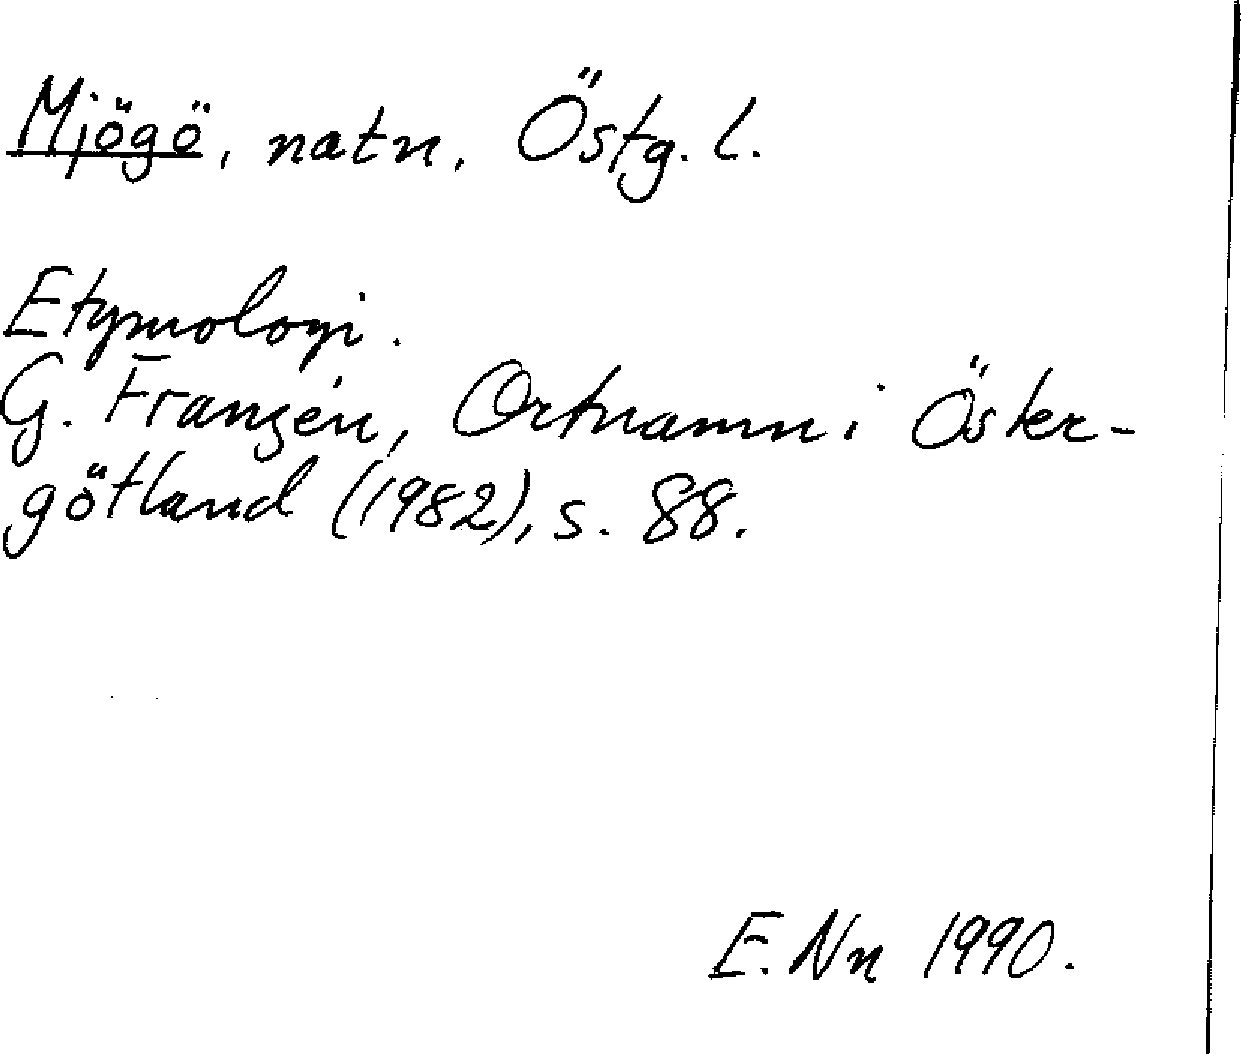 Mjögö, natn. Östg. l.
Etymologi.
G. Franzén, Ortnamn i Öster-
götland (1982), s. 88.
E. Nn 1990.